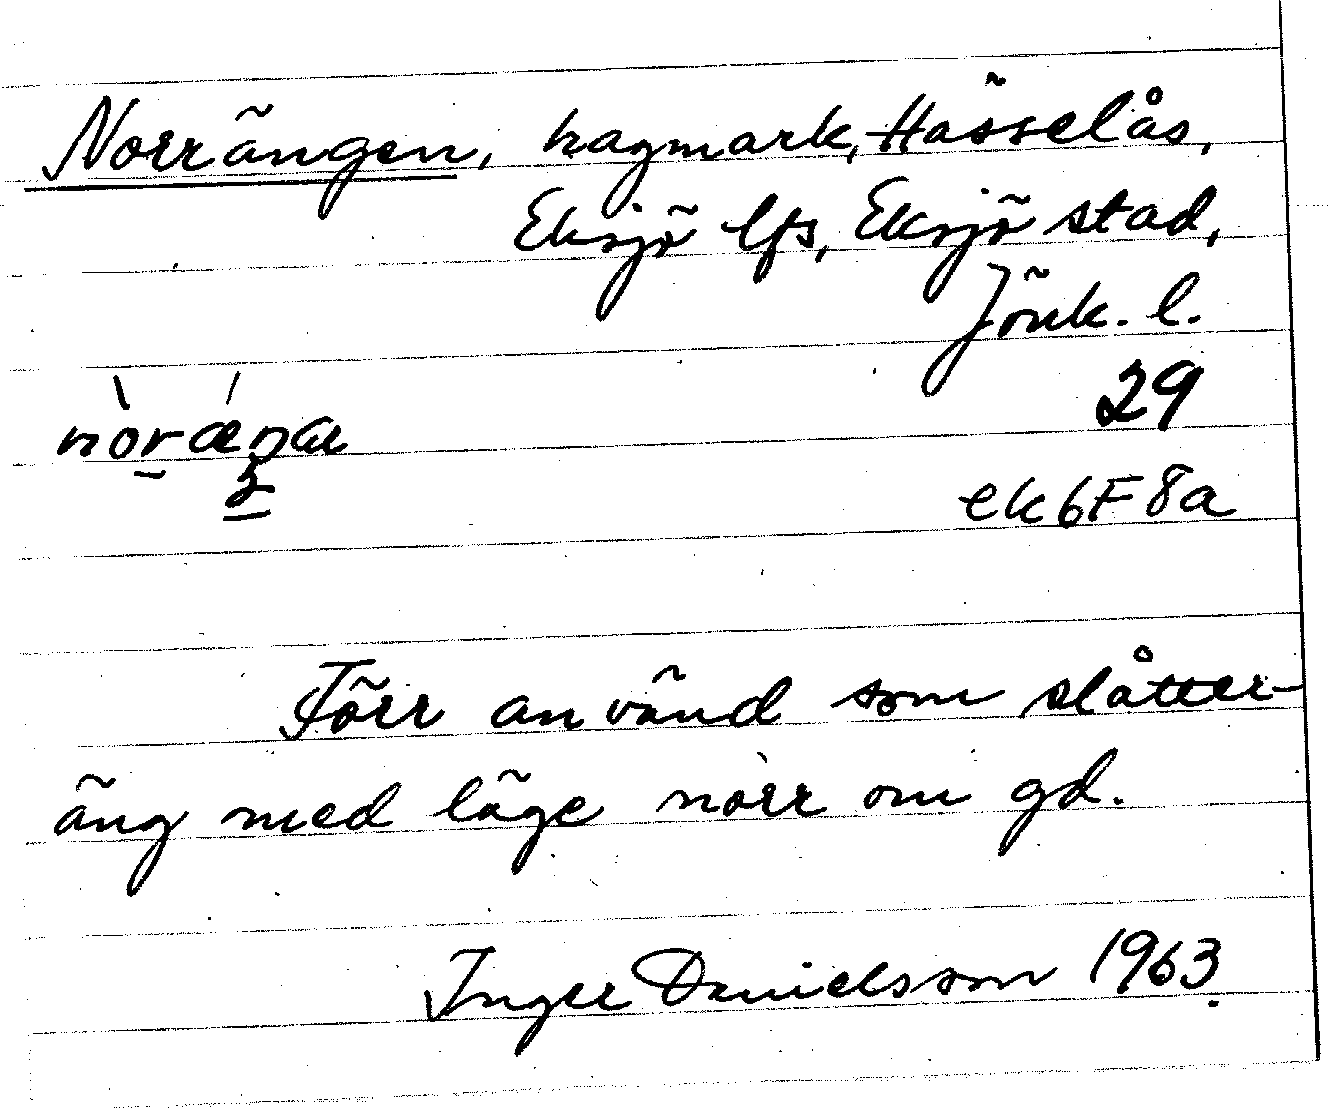 Norrängen, hagmark, Hässelås,
Eksjö lfs, Eksjö stad,
Jönk. l.
29
ek 6F8a
Förr använd som slåtter-
äng med läge norr om gd.
Inger Danielsson 1963.